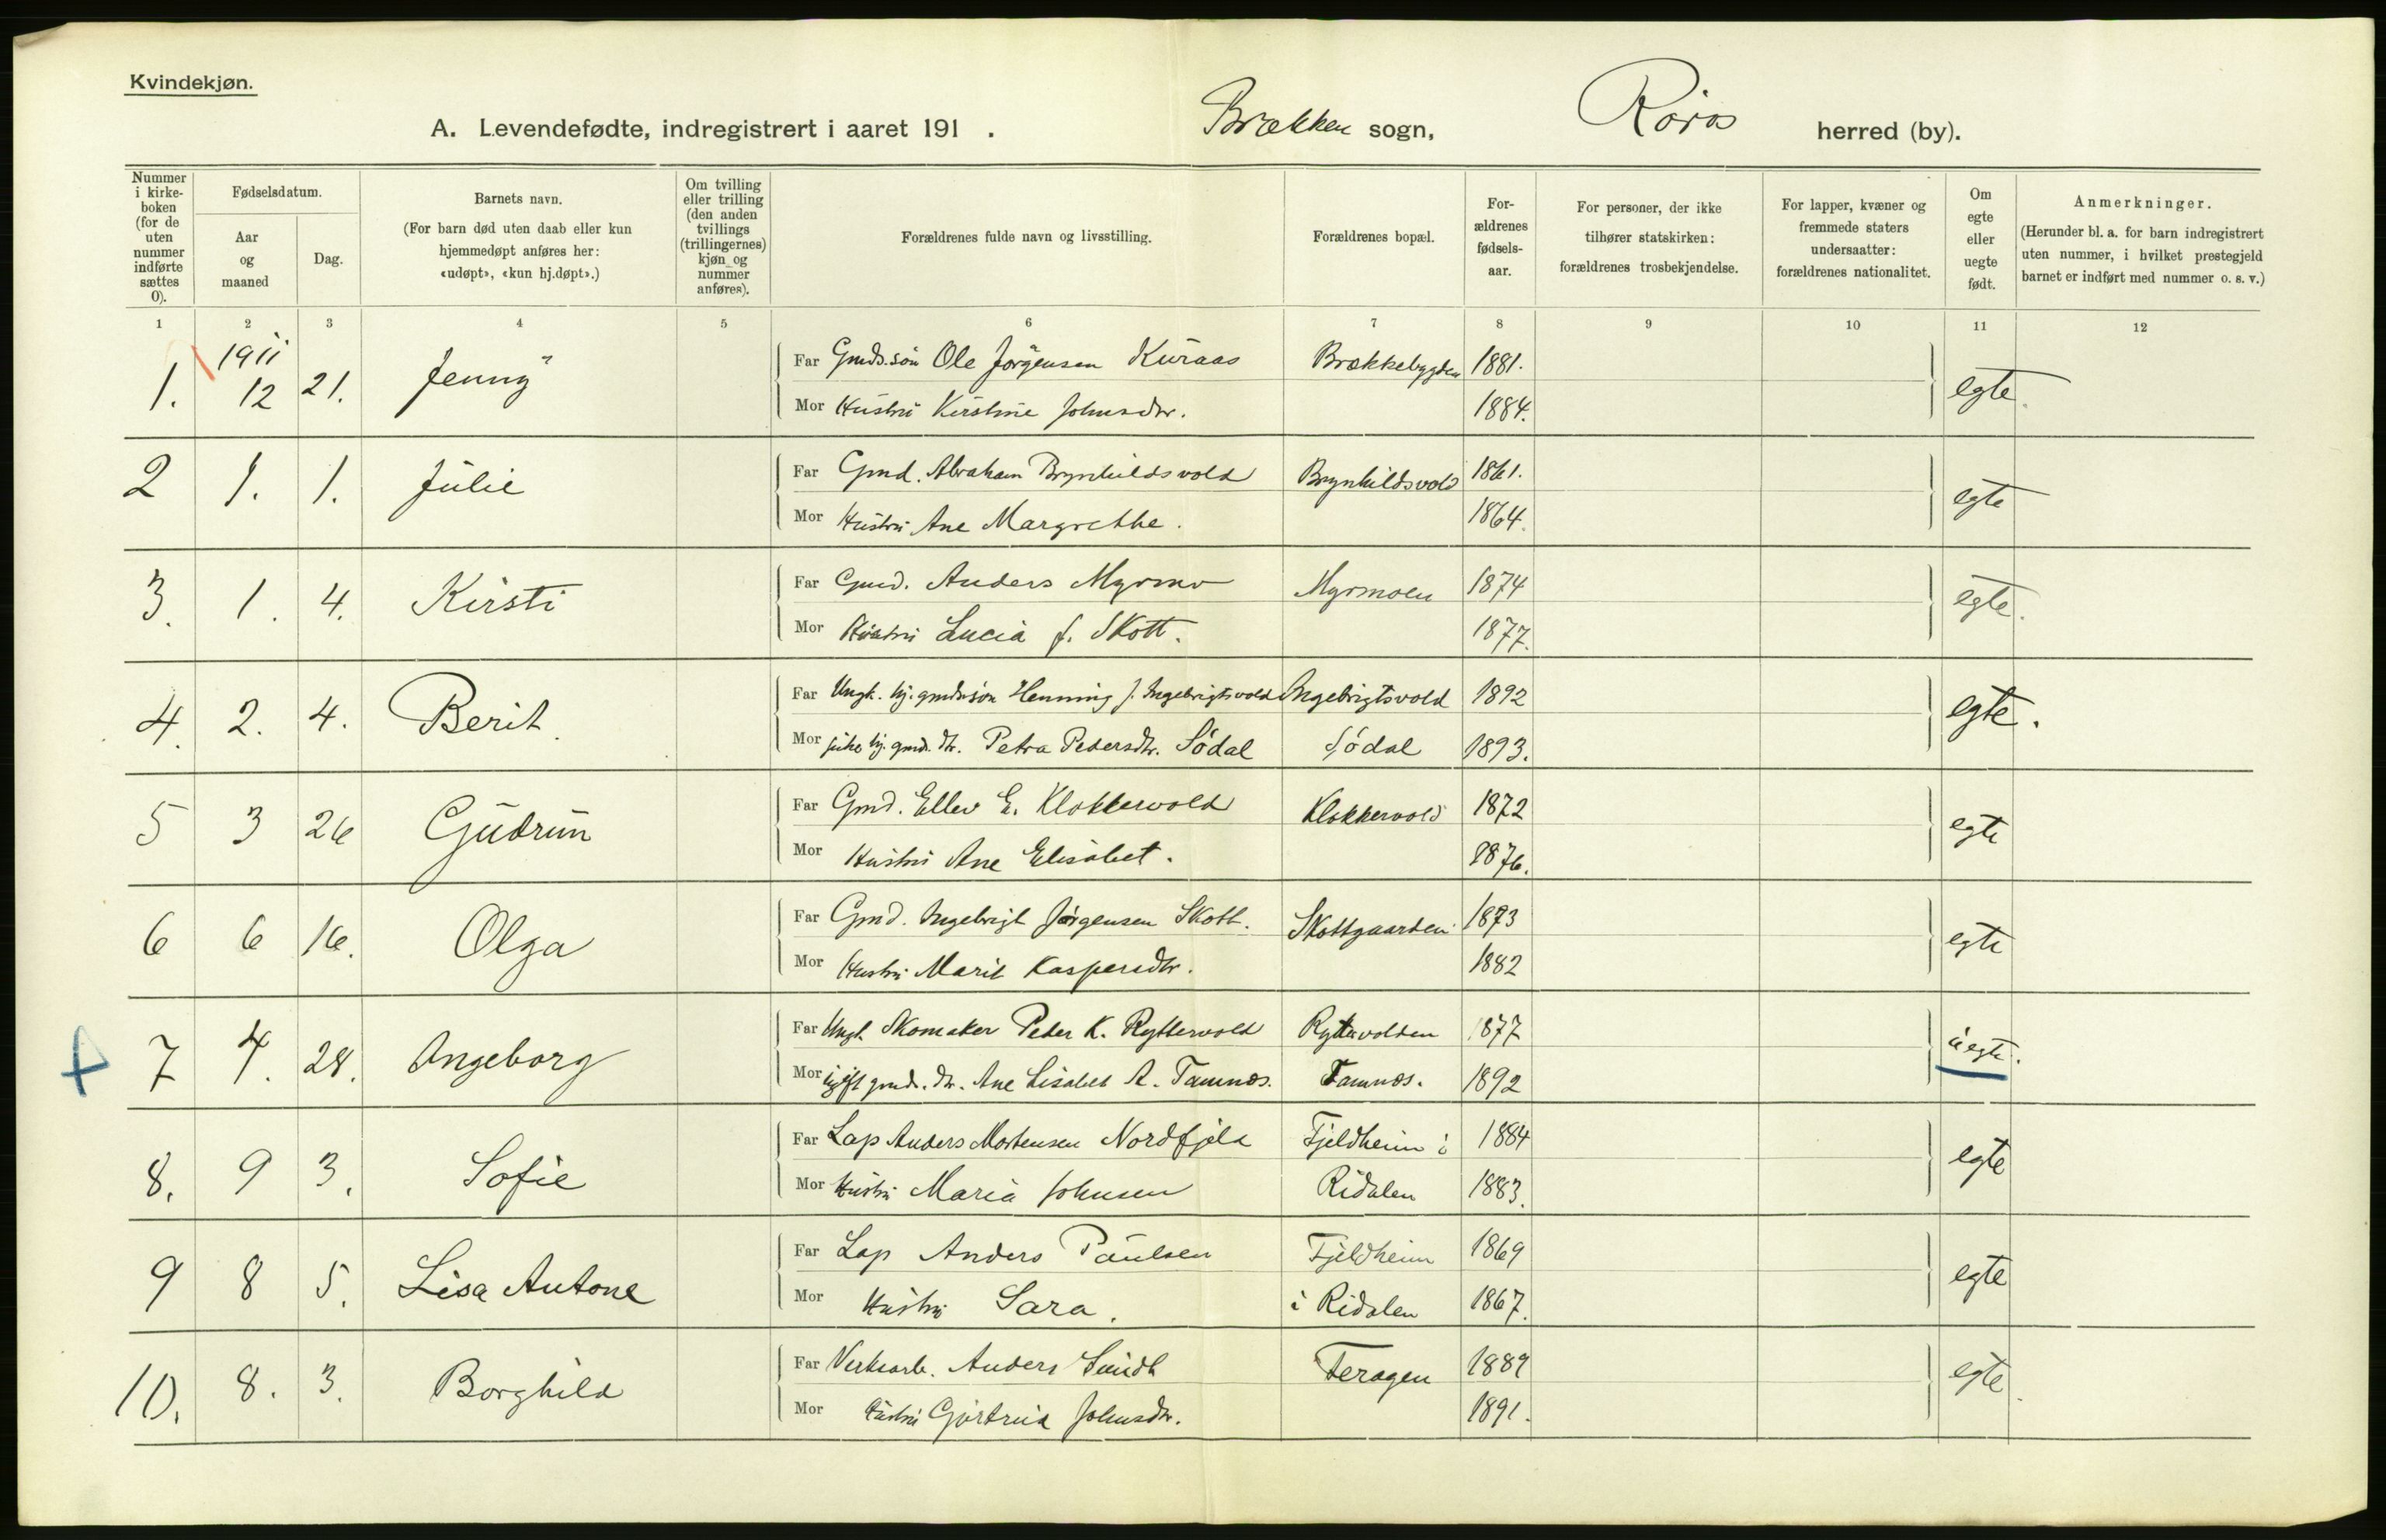 Kvindekjøn.
A. Levendefødte, indregistrert i aaret 191 . Brækken sogn, Røros herred (by).
Nummer i kirkeboken (for de uten nummer indførte sættes 0).
Fødselsdatum.
Aar og maaned
Dag.
Barnets navn.
(For barn død uten daab eller kun hjemmedøpt anføres her: «udøpt», «kun hj.døpt».)
Om tvilling eller trilling (den anden tvillings (trillingernes) kjøn og nummer anføres).
Forældrenes fulde navn og livsstilling.
Forældrenes bopæl.
Forældrenes fødselsaar.
For personer, der ikke tilhører statskirken: forældrenes trosbekjendelse.
For lapper, kvæner og fremmede staters undersaatter: forældrenes nationalitet.
Om egte eller uegte født.
Anmerkninger.
(Herunder bl. a. for barn indregistrert uten nummer, i hvilket prestegjeld barnet er indført med nummer o. s. v.)
1 2 3 4 5 6 7 8 9 10 11 12
1. 1911 12 21. Jenny Far Gmds.søn Ole Jørgensen Kuraas Brækkebygden 1881. egte.
Mor Hustru Kirstine Johnsdtr. 1884.
2 1. 1. Julie Far Gmd. Abraham Brynhildsvold Brynhildsvold 1861. egte
Mor Hustru Ane Margrethe. 1864.
3. 1. 4. Kirsti Far Gmd. Anders Myrmo Myrmoen 1874 egte.
Mor Hustru Lucia f. Skott. 1877.
4. 2. 4. Berit. Far Ungk. hj. gmdssøn Henning J. Ingebrigtsvold Ingebrigtsvold 1892 egte.
Mor pike hj. gmd. dtr. Petra Pedersdtr. Sødal Sødal 1893.
5 3 26 Gudrun Far Gmd. Ellev E. Klokkervold Klokkervold 1872 egte
Mor Hustru Ane Elisabet. 1876.
6 6 16. Olga Far Gmd. Ingebrigt Jørgensen Skott. Skottgaarden 1873 egte
Mor Hustru Marit Kaspersdtr. 1882
7 4. 28. Ingeborg Far Ungk. Skomaker Peder K. Ryttervold Ryttervolden 1877 uegte.
Mor ugift gmds. dtr. Ane Lisabet A. Tamnæs. Tamnæs. 1892
8. 9 3. Sofie Far Lap Anders Mortensen Nordfjeld Fjeldheim i 1884 egte
Mor Hustru Maria Johnsen Ridalen 1883.
9 8 5. Lisa Antone Far Lap Anders Paulsen Fjeldheim 1869 egte
Mor Hustru Sara. i Ridalen 1867.
10. 8. 3. Borghild Far Verksarb. Anders Sundt Feragen 1889 egte.
Mor Hustru Gjertrud Johnsdtr. 1891.